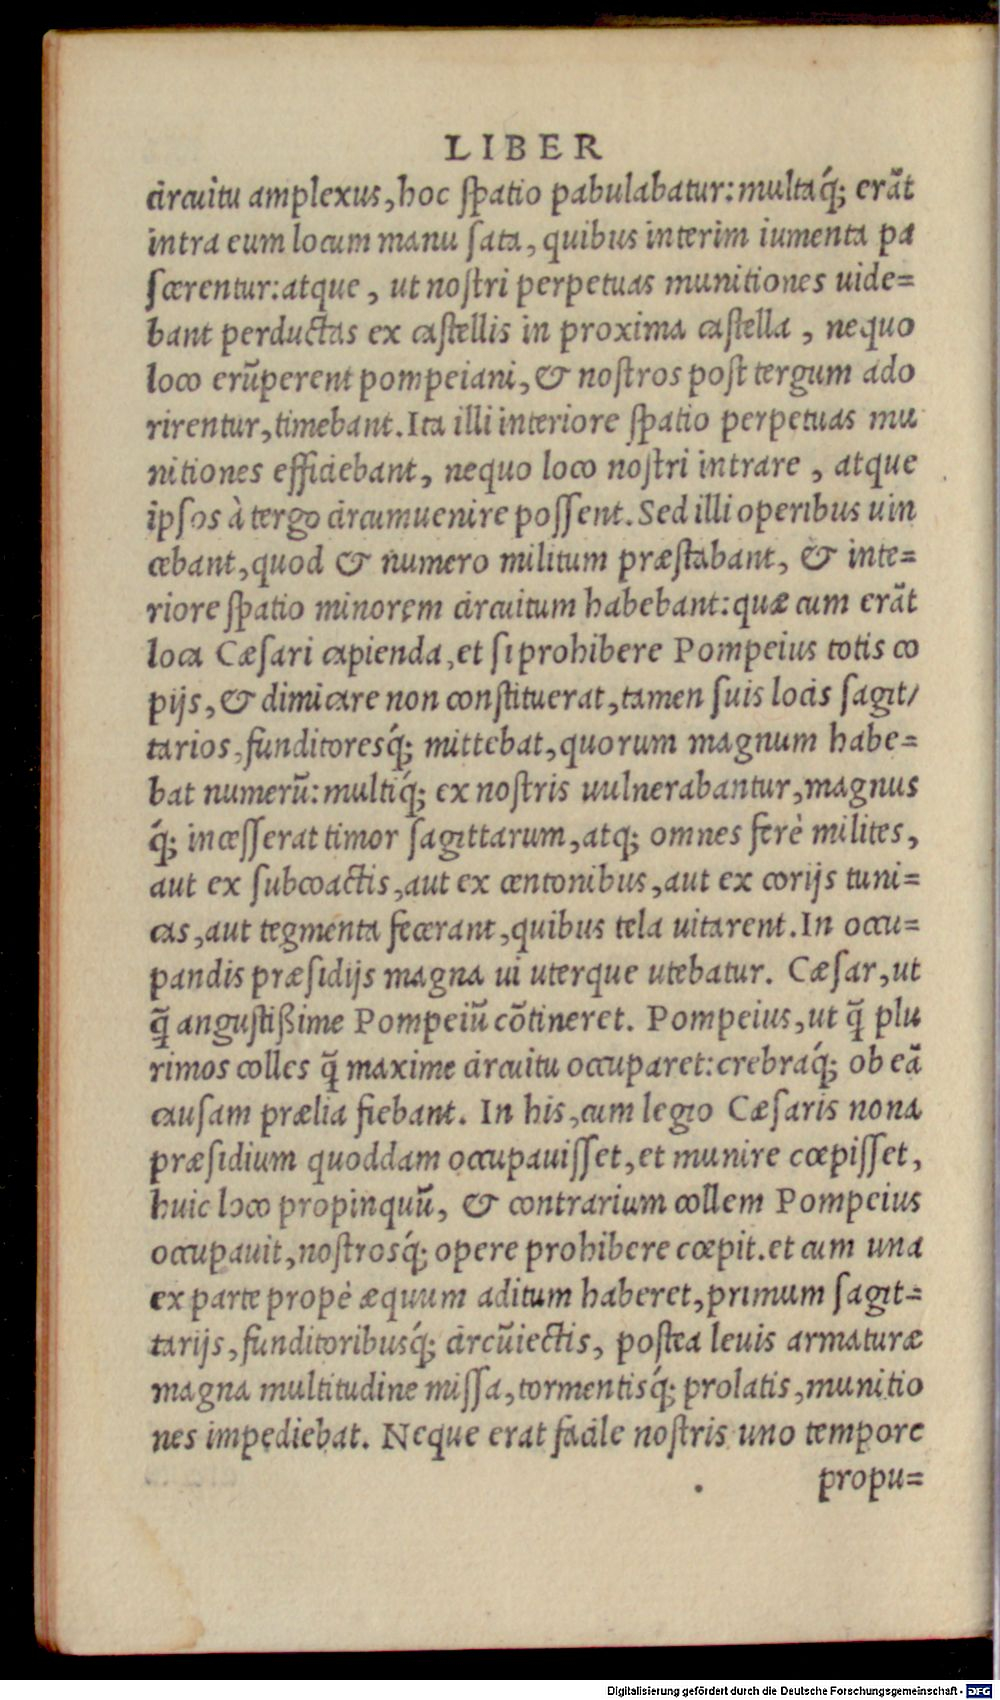 LIBER
circuitu amplexus, hoc ſpatio pabulabatur: multaq́; erãt
intra eum locum manu ſata, quibus interim iumenta pa
ſcerentur: atque, ut noſtri perpetuas munitiones uide=
bant perductas ex caſtellis in proxima caſtella, nequo
loco erũperent pompeiani, & noſtros poſt tergum ado
rirentur, timebant. Ita illi interiore ſpatio perpetuas mu
nitiones efficiebant, nequo loco noſtri intrare, atque
ipſos à tergo circumuenire poſſent. Sed illi operibus uin
cebant, quod & numero militum præſtabant, & inte=
riore ſpatio minorem circuitum habebant: quæ cum erãt
loca Cæſari capienda, et ſi prohibere Pompeius totis co
pijs, & dimicare non conſtituerat, tamen ſuis locis ſagit/
tarios, funditoresq́; mittebat, quorum magnum habe=
bat numerũ: multiq́; ex noſtris uulnerabantur, magnus
q́; inceſſerat timor ſagittarum, atq; omnes ferè milites,
aut ex ſubcoactis, aut ex centonibus, aut ex corijs tuni=
cas, aut tegmenta fecerant, quibus tela uitarent. In occu=
pandis præſidijs magna ui uterque utebatur. Cæſar, ut
q̃ anguſtißime Pompeiũ cõtineret. Pompeius, ut q̃ plu
rimos colles q̃ maxime circuitu occuparet: crebraq́; ob eã
cauſam prælia fiebant. In his, cum legio Cæſaris nona
præſidium quoddam occupauiſſet, et munire cœpiſſet,
huic loco propinquũ, & contrarium collem Pompeius
occupauit, noſtrosq́; opere prohibere cœpit. et cum una
ex parte propè æquum aditum haberet, primum ſagit=
tarijs, funditoribusq́; circũiectis, poſtea leuis armaturæ
magna multitudine miſſa, tormentisq́; prolatis, munitio
nes impediebat. Neque erat facile noſtris uno tempore
propu=
Digitalisierung gefördert durch die Deutsche Forschungsgemeinschaft - DFG